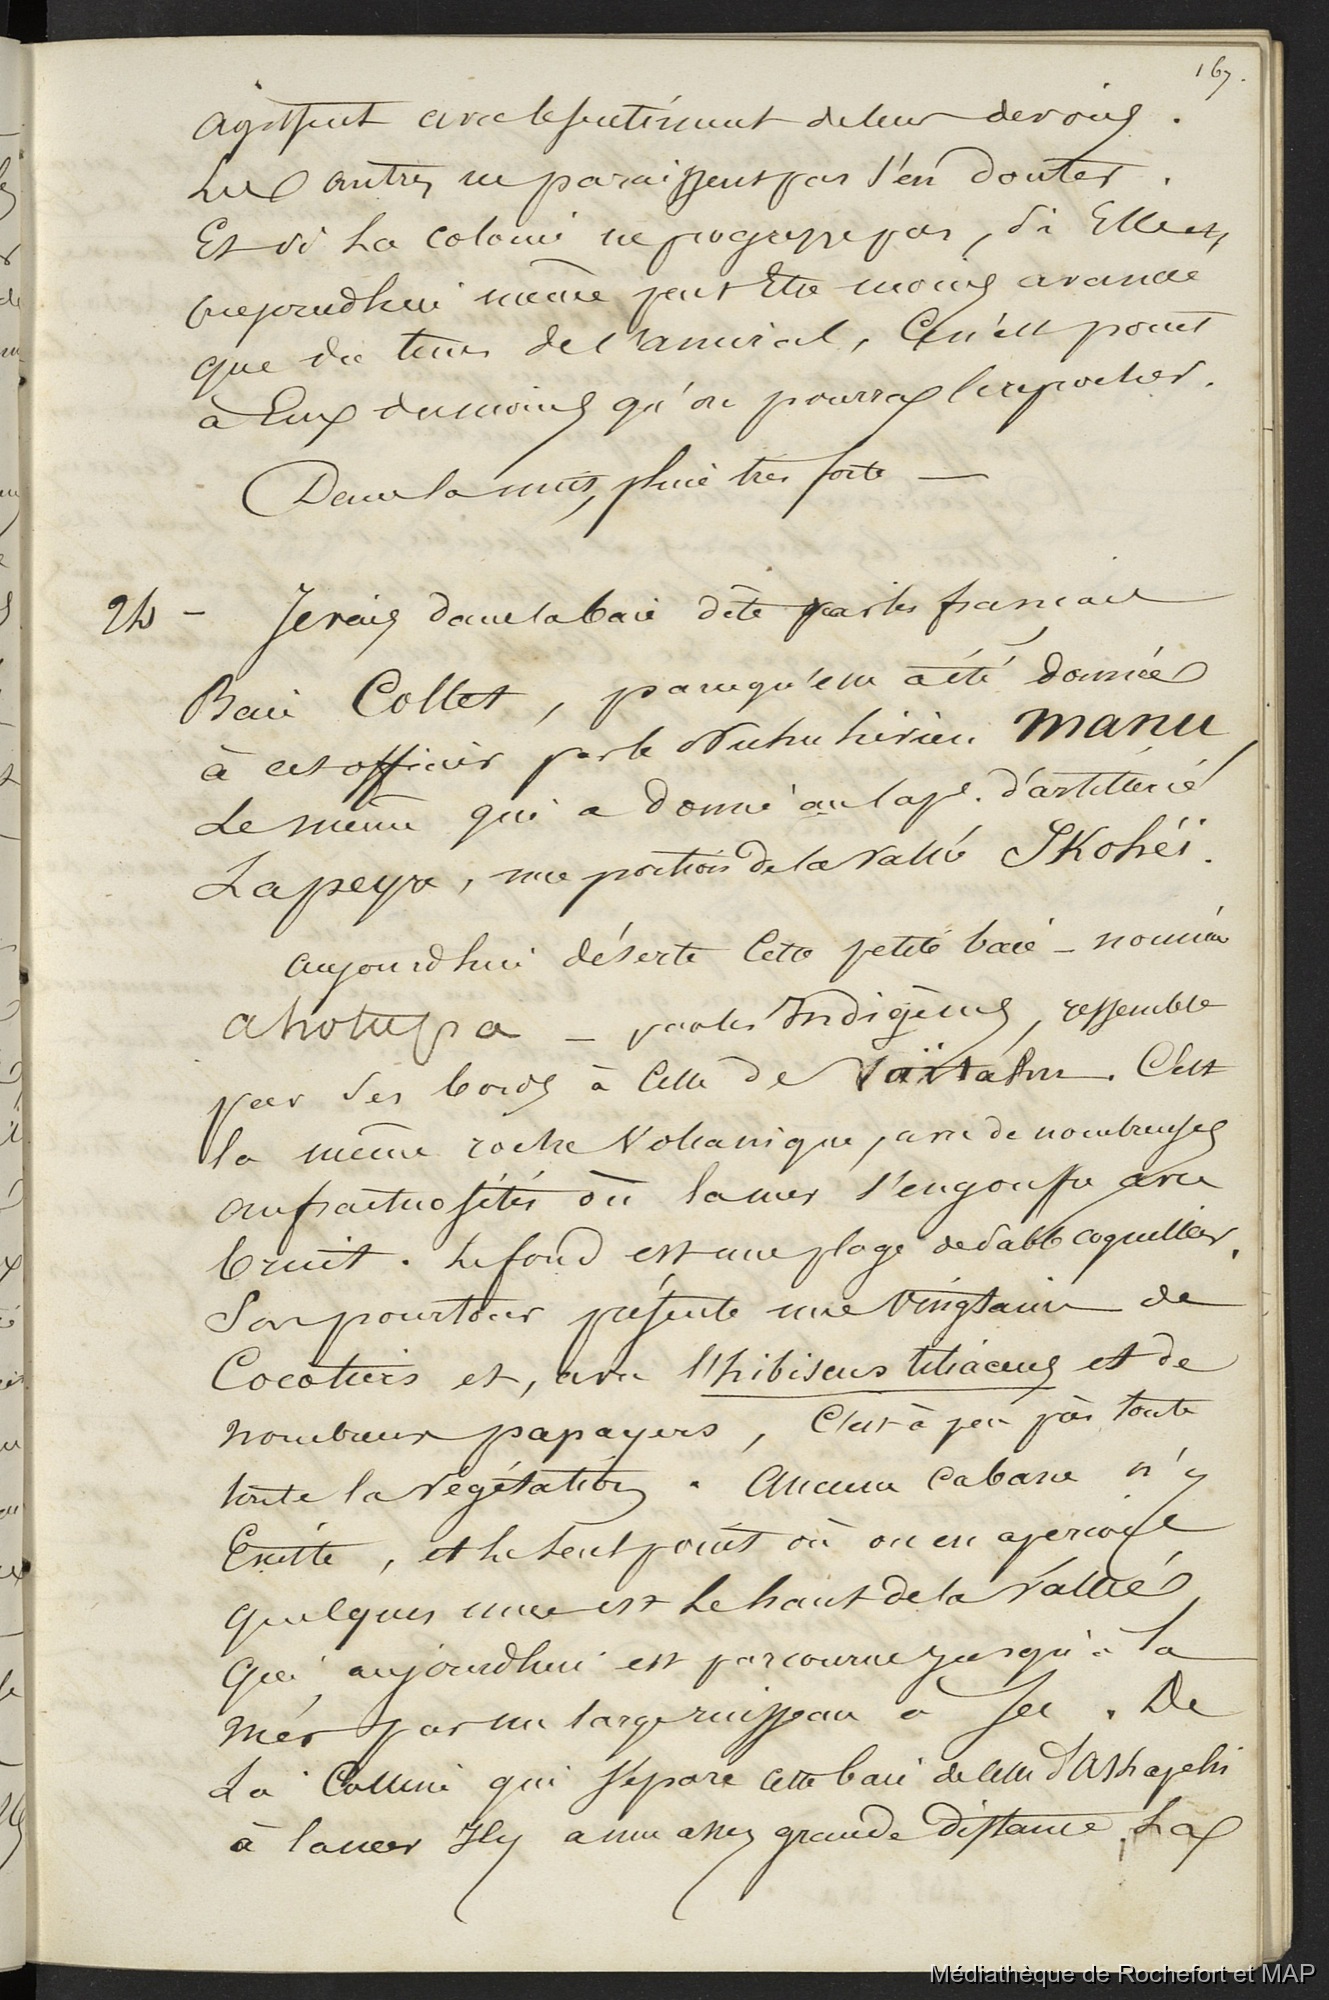 167.
agissent avec le sentiment de leur devoirs.
Les autres ne paraissent pas s'en douter.
Et si la colonie ne progresse pas, si Elle est
aujourdhui même peut Etre moins avancée
que du tems de l'amiral, Ce n'est point
à Eux du moins qu'on pourra le reprocher.
Dans la nuit, pluie très forte —
24 – Je vais dans la baie dite par les français
Baie Collet, parcequ'elle a été donnée
à cet officier par le Nuhuhivien Manu
Le même qui a donné au cape. d'artillerie
Lapeyre, une portion de la vallée Ikohéi.
aujourdhui déserte Cette petite baie – nommée
ahotupa – par les Indigènes, ressemble
par ses bords à Celle de Vaïtahu. C'est
la même roche Volcanique, avec de nombreuses
anfractuosités où la mer s'engouffre avec
bruit. Le fond est une plage de sable coquillier.
Son pourtour présente une Vingtaine de
Cocotiers et, avec l'hibiscus tiliaceus et de
nombreux papayers, C'est à peu près toute
toute la végétation. Aucune Cabane n'y
Existe, et le seul point où on en aperçoive
quelques unes est le haut de la Vallée,
qui aujourdhui est parcourue jusqu'à la
mer par un large ruisseau à sec. De
La Colline qui sépare cette baie de celle d'
à la mer Il y a une assez grande distance. La
Médiathèque de Rochefort et MAP